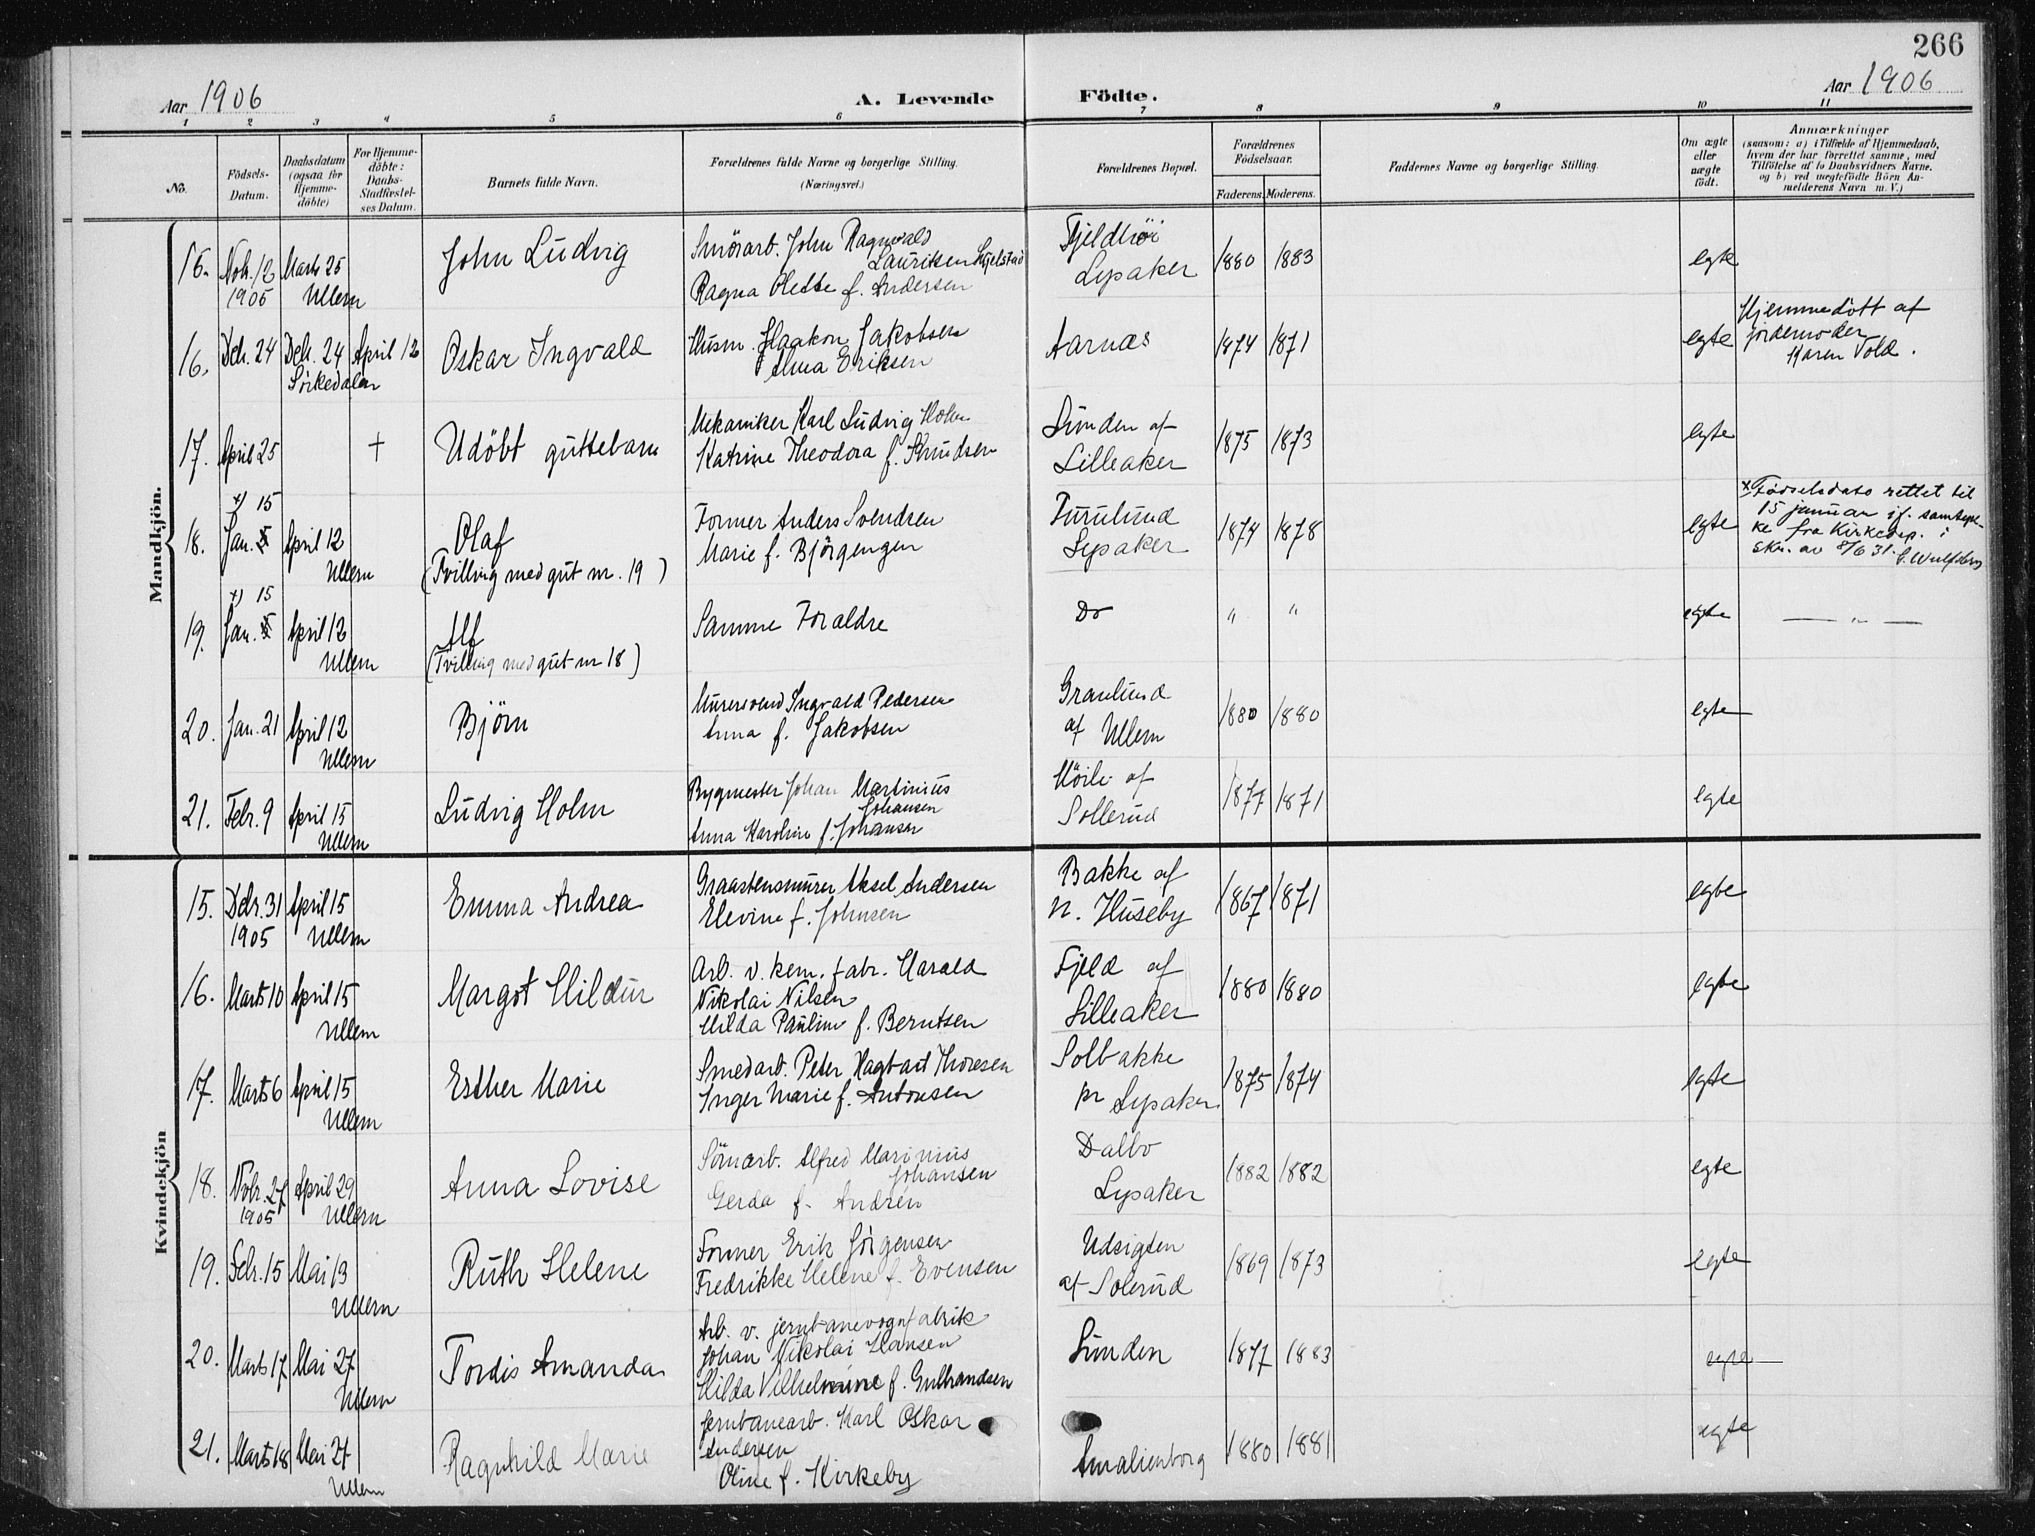 266
Aar 1906
A. Levende Födte.
Aar 1906
1 2 3 4 5 6 7 8 9 10 11
No.
Födsels-
Datum.
Daabsdatum
(ogsaa for
Hjemme-
döbte)
For Hjemme-
döbte:
Daabs-
Stadfæstel-
ses Datum.
Barnets fulde Navn.
Forældrenes fulde Navne og borgerlige Stilling.
(Næringsvei.)
Forældrenes Bopæl.
Forældrenes
Födselsaar.
Faderens. Moderens.
Faddernes Navne og borgerlige Stilling.
Om ægte
eller
uægte
födt.
Anmærkninger
(saasom: a) i Tilfælde af Hjemmedaab,
hvem der har forrettet samme, med
Tilföielse af to Daabsvidners Navne.
og b) ved uægtefödte Börn An-
melderens Navn m. V.)
Mandkjön.
16. Nov. 12 Marts 25 John Ludvig Smörarb. John Ragnvald Fjeldhöi 1880 1883 egte
1905 Ullern Lauritsen Lysaker
Ragna Olette f. Andersen
16. Dcb. 24 Dcb. 24 April 12 Oskar Ingvald Husm. Haakon Jakobsen Aarnæs 1874 1871 egte Hjemmedöbt af
Sörkedalen Alma Eriksen jordemoder
Karen Vold.
17. April 25 + Udöbt guttebarn Mekaniker Karl Ludvig Holm Lunden af 1875 1873 egte
Katrine Theodora f. Knudsen Lilleaker
x) 15
18. Jan. 5 April 12 Olaf Former Anders Svendsen Furulund 1874 1878 egte x Fødselsdato rettet til
Ullern (Tvilling med gut nr. 19) Marie f. Björgengen Lysaker 15 januar if. samtyk-
ke fra Kirkedep. i
skr. av 8/6 31.
x) 15
19. Jan. 5 April 12 Alf Samme Foraldre Do " " egte — " —
Ullern (Tvilling med gut nr 18)
20. Jan. 21 April 12 Bjørn Murersvend Ingvald Pedersen Granlund 1880 1880 egte
Ullern Anna f. Jakobsen af Ullern
21. Febr. 9 April 15 Ludvig Holm Bygmester Johan Martinius 1877 1871 egte
Ullern Johansen Sollerud
Anna Karoline f. Johansen
Kvindekjön
15. Dcbr. 31 April 15 Emma Andrea Graastensmurer Aksel Andersen Bakke af 1867 1871 egte
1905 Ullern Elevine f. Johnsen N. Huseby
16. Marts 10 April 15 Margot Hildur Arb. v. kem. fabr. Harald Fjeld af 1880 1880 egte
Ullern Nikolai Nilsen Lilleaker
Hilda Pauline f. Berntsen
17. Marts 6 April 15 Esther Marie Smedarb. Peter Hagbart Thoresen Solbakke 1875 1874 egte
Ullern Inger Marie f. Antonsen pr Lysaker
18. Nobr. 27 April 29 Anna Lovise Alfred Marinius Dalbo 1882 1882 egte
1905 Ullern Johansen Lysaker
Gerda f. Andrén
19. Febr. 15 Mai 13 Ruth Helene Former Erik Jörgensen Udsigten 1869 1873 egte
Ullern Fredrikke Helene f. Evensen af Solerud
20. Marts 17 Mai 27 Tordis Amanda Arb. v. jernbanevognfabrik Lunden 1877 1883 egte
Ullern Johan Nikolai Hansen
Hilda Vilhelmine f. Gulbrandsen
21. Marts 18 Mai 27 Ragnhild Marie Jernbanearb. Karl Oskar Amalienborg 1880 1881 egte
Ullern Andersen
Oline f. Kirkeby